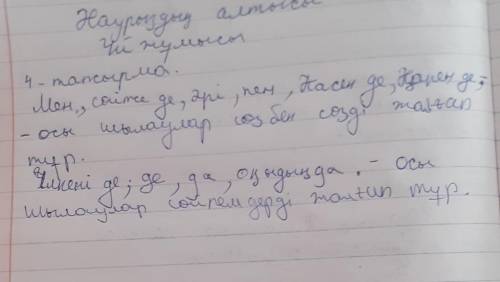 Наурыздың алтысы
Үй жұмысы
4-тапсырма.
Мен, сөйтсе де, әрі, пен, Насен де, Қарен де;
- осы шылаулар сөз бен сөзді жалғап
тұр.
Үлкені де; де, да, оқыдыңда. - осы
шылаулар сөйлемдерді жалғап тұр.